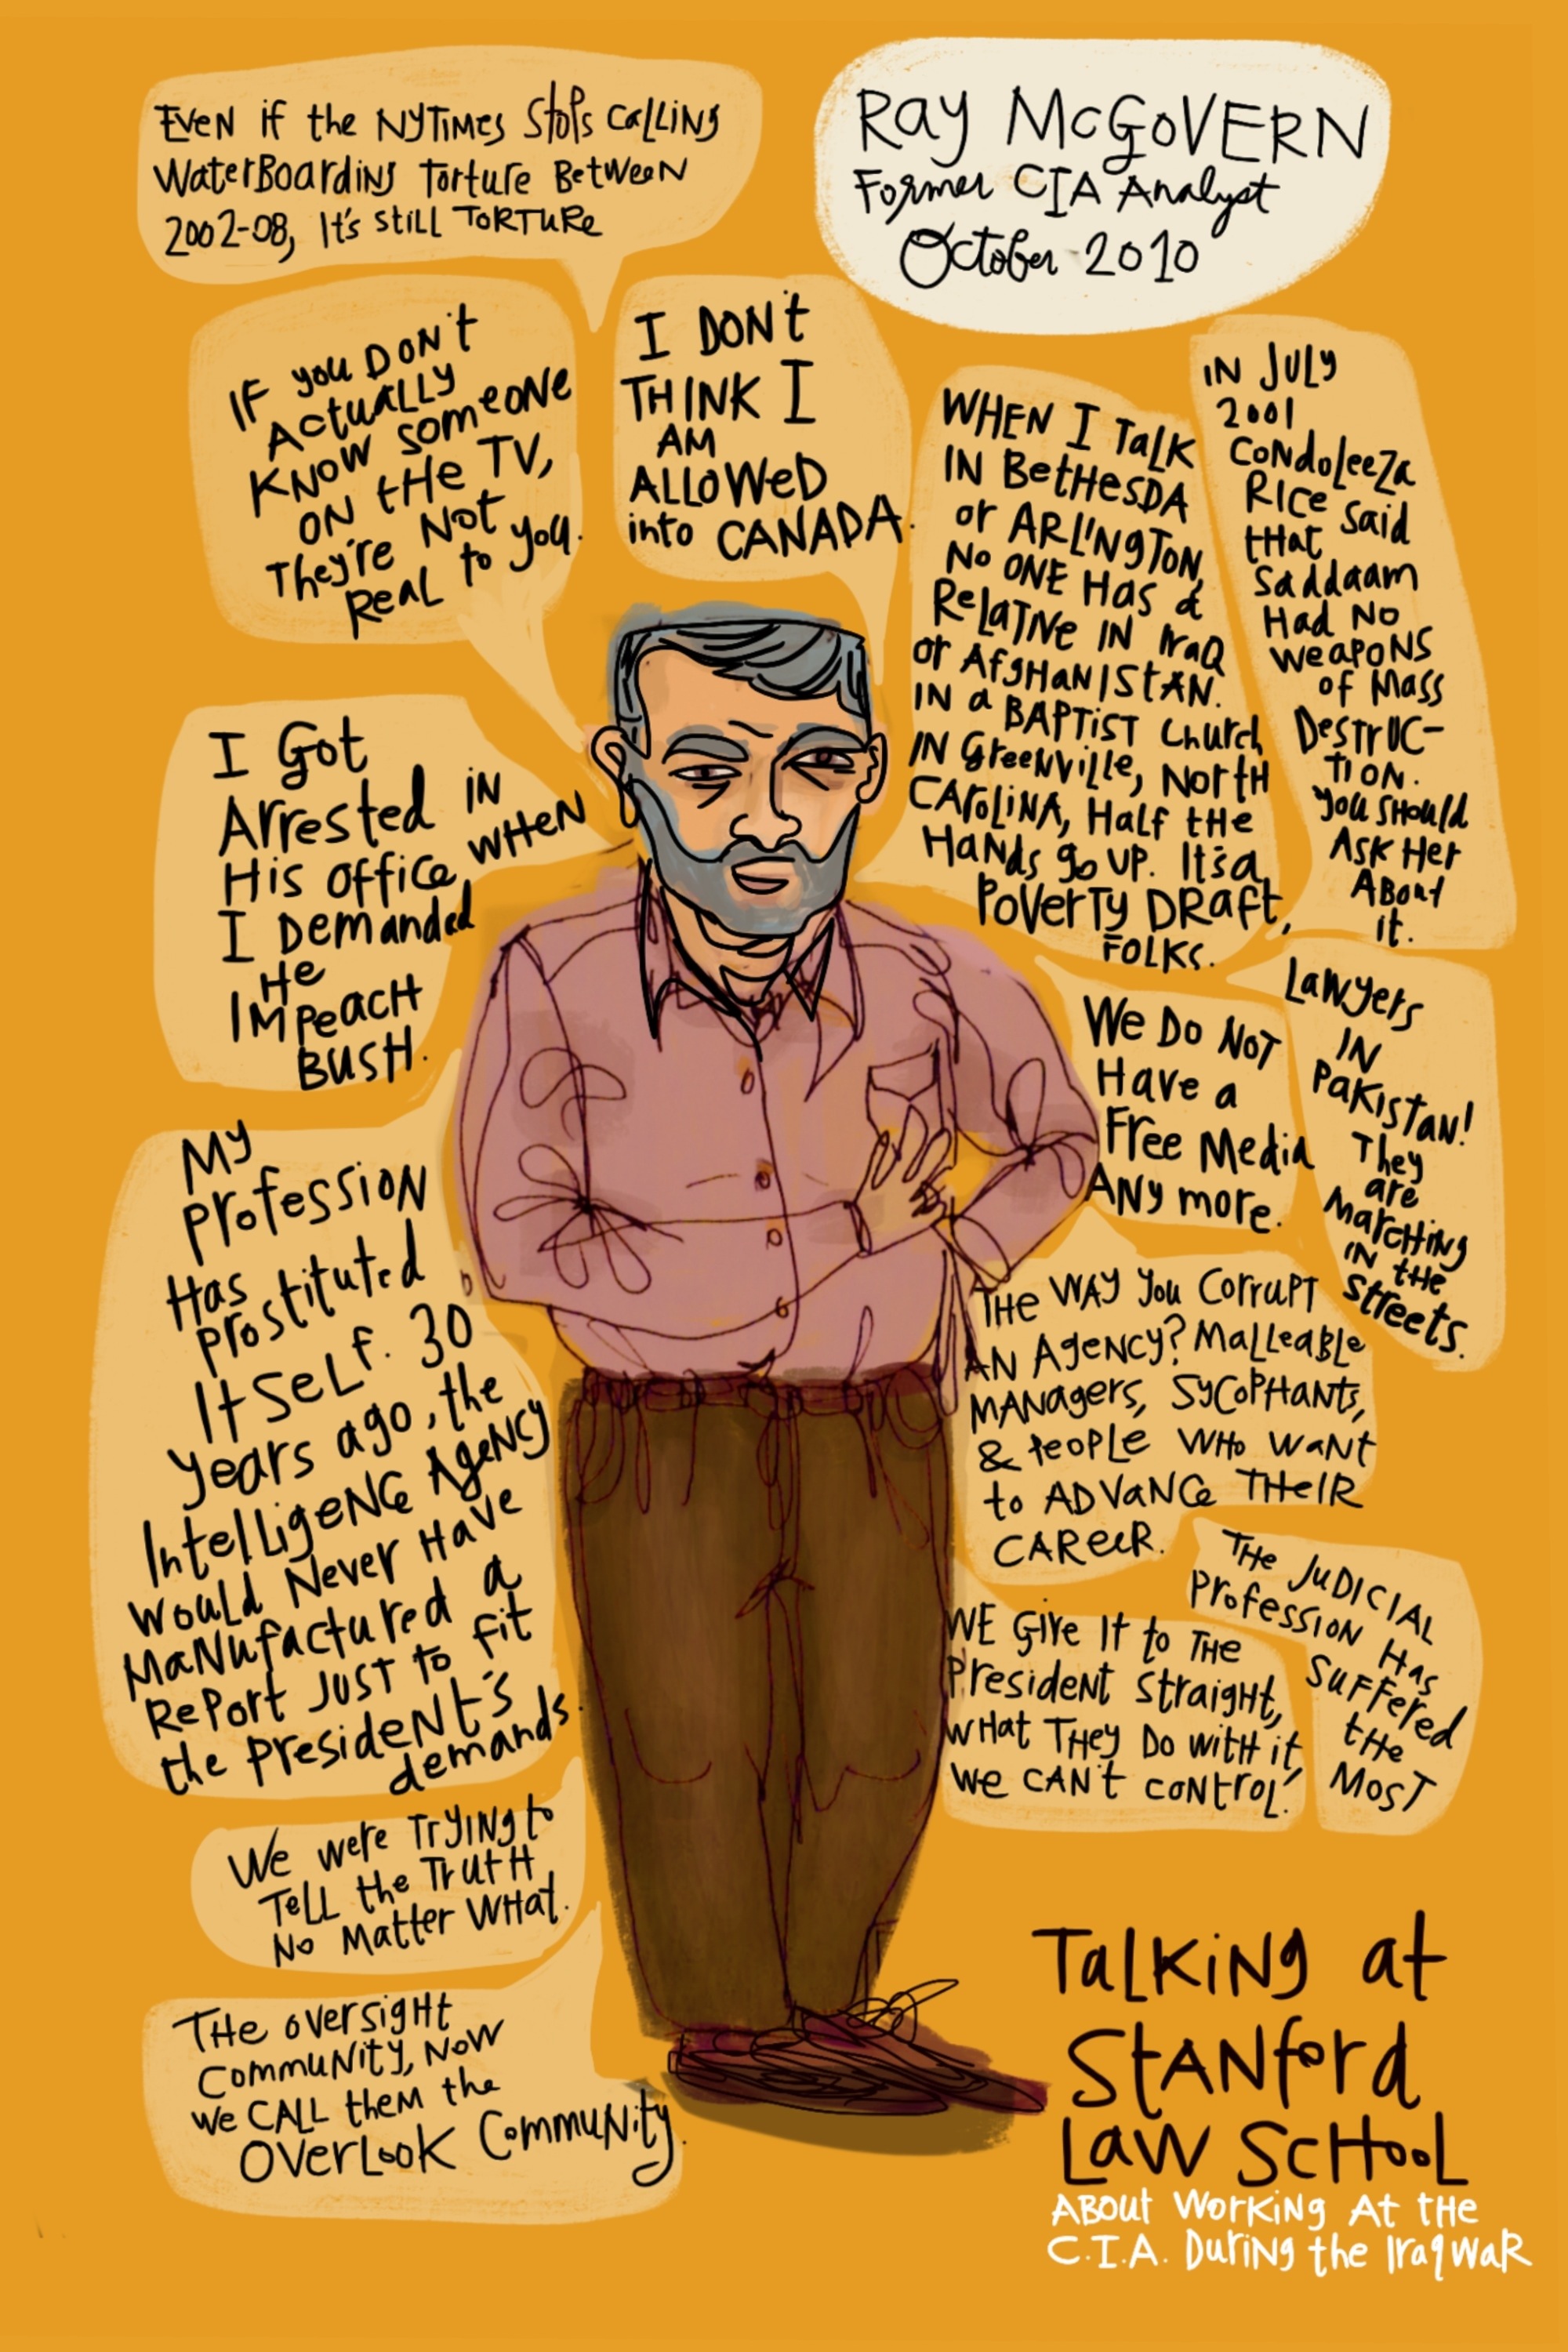 Even if the NYTimes Stops Calling
WaterBoarding Torture Between
2002-08, It's still Torture
Ray McGovern
Former CIA Analyst
October 2010
If you Don't
Actually
Know Someone
on the TV,
They're Not
Real to you.
I Don't
Think I
am
Allowed
into Canada.
When I Talk
in Bethesda
or Arlington,
No one Has a
Relative in Iraq
or Afghanistan.
In a Baptist Church
in Greenville, North
Carolina, Half the
Hands go up. It's a
Poverty Draft,
Folks.
In July
2001
Condoleeza
Rice said
that
Saddaam
Had No
Weapons
of Mass
Destruc-
tion.
You Should
Ask Her
About
it.
I Got
Arrested in
His office when
I Demanded
He
Impeach
Bush.
We Do Not
Have a
Free Media
Any more.
Lawyers
in
Pakistan!
They
are
Marching
in the
Streets.
My
Profession
Has
Prostituted
Itself. 30
years ago, the
Intelligence Agency
would Never Have
Manufactured a
Report Just to fit
the President's
demands.
The Way You Corrupt
an Agency? Malleable
Managers, Sycophants,
& People who want
to Advance Their
Career.
We Give it to the
President Straight,
What They Do with it,
We Can't Control.
The Judicial
Profession Has
Suffered
the
Most
We were Trying to
Tell the Truth
No Matter What.
The oversight
community, Now
we call them the
Overlook Community.
Talking at
Stanford
Law School
About Working At the
C.I.A. During the Iraq War